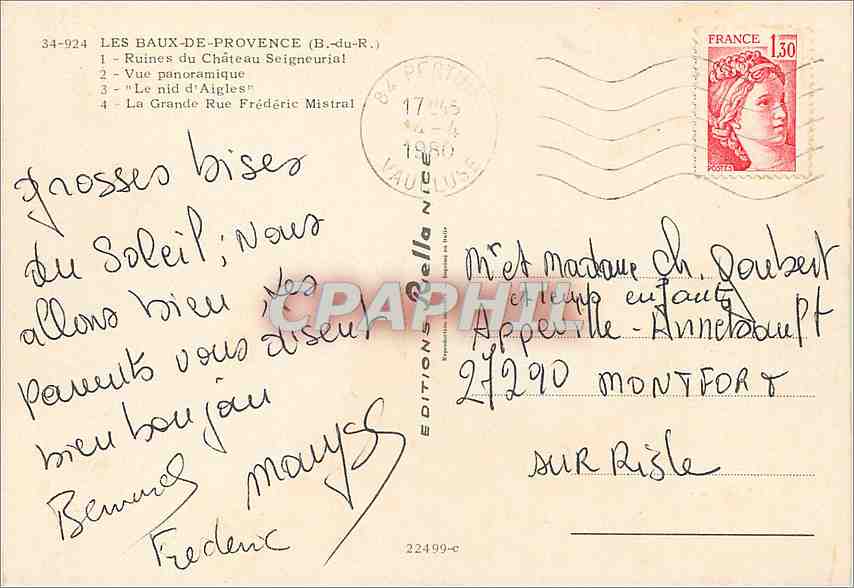 34-924 LES BAUX-DE-PROVENCE (B.-du-R.)
1 - Ruines du Château Seigneurial
2 - Vue panoramique
3 - "Le nid d'Aigles"
4 - La Grande Rue Frédéric Mistral
84 PERTUIS
17H45
1980
VAUCLUSE
FRANCE 1,30
POSTES
grosses bises
du Soleil; Nous
allons bien, les
parents vous disent
bien bonjour
Bernard Maryse
Frederic
EDITIONS Rella NICE
Mr et Madame Ch. Joubert
et leurs enfants
Appeville-Annebault
27290 MONTFORT
SUR Risle
CPAPHIL
22499-c